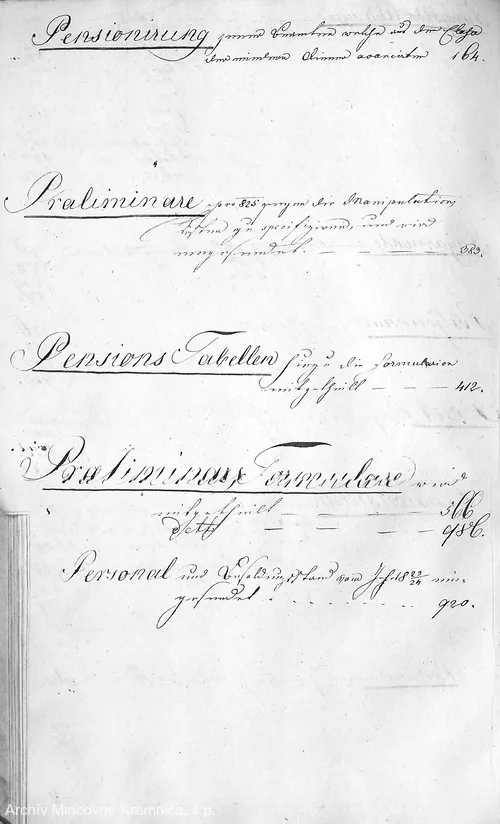 Pensionirung jener Beamten welche aus der Classe
der mindern Diener avancirten 164.
Praliminare pro 825 wegen der Manipulations
Kösten zu specifiziren, und wird
eingesendet. — — — — 383.
Pensions Tabellen hiezu die Formularien
mitgetheilt — — — 412.
Praliminare Formulare wird
mitgetheilt — — — 566
Detto — — — 986.
Personal und Besoldungsstand vom Jahr 18 23/24 ein-
gesendet . . . . . . . . . 920.
Archív Mincovne Kremnica, š. p.